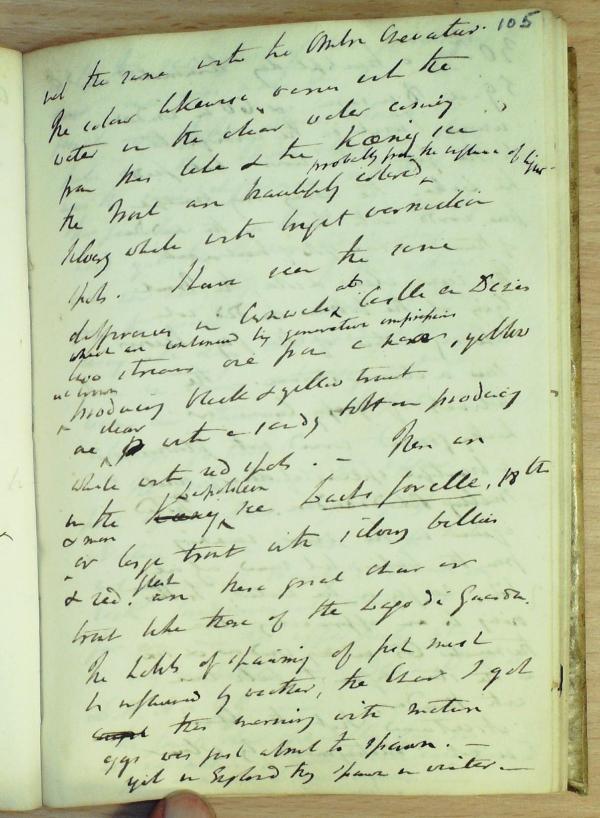 105
not the same with the Ombre Chevalier.
The colour likewise varies with the
water in the clear water coming
from this lake & the Kœnig see
probably from the influence of light
the Trout are beautifully colored
silvery white with bright vermilion
spots. Have seen the same
differences in at Castle on
which are continued by generation
two streams one from a, yellow
or brown
producing black & yellow trout
clear
one with a sandy bottom producing
white with red spots. — There are
Leopoldstein
in the Kœnig see Lachs forelle, 18 lb
& more
or large trout with silvery bellies
flesh
& red. are these great char or
trout like those of the Lago di Guarda.
The habits of spawning of fish must
be influenced by weather, the Char I got
caught this morning with mature
eggs was just about to spawn. —
yet in England they spawn in winter —